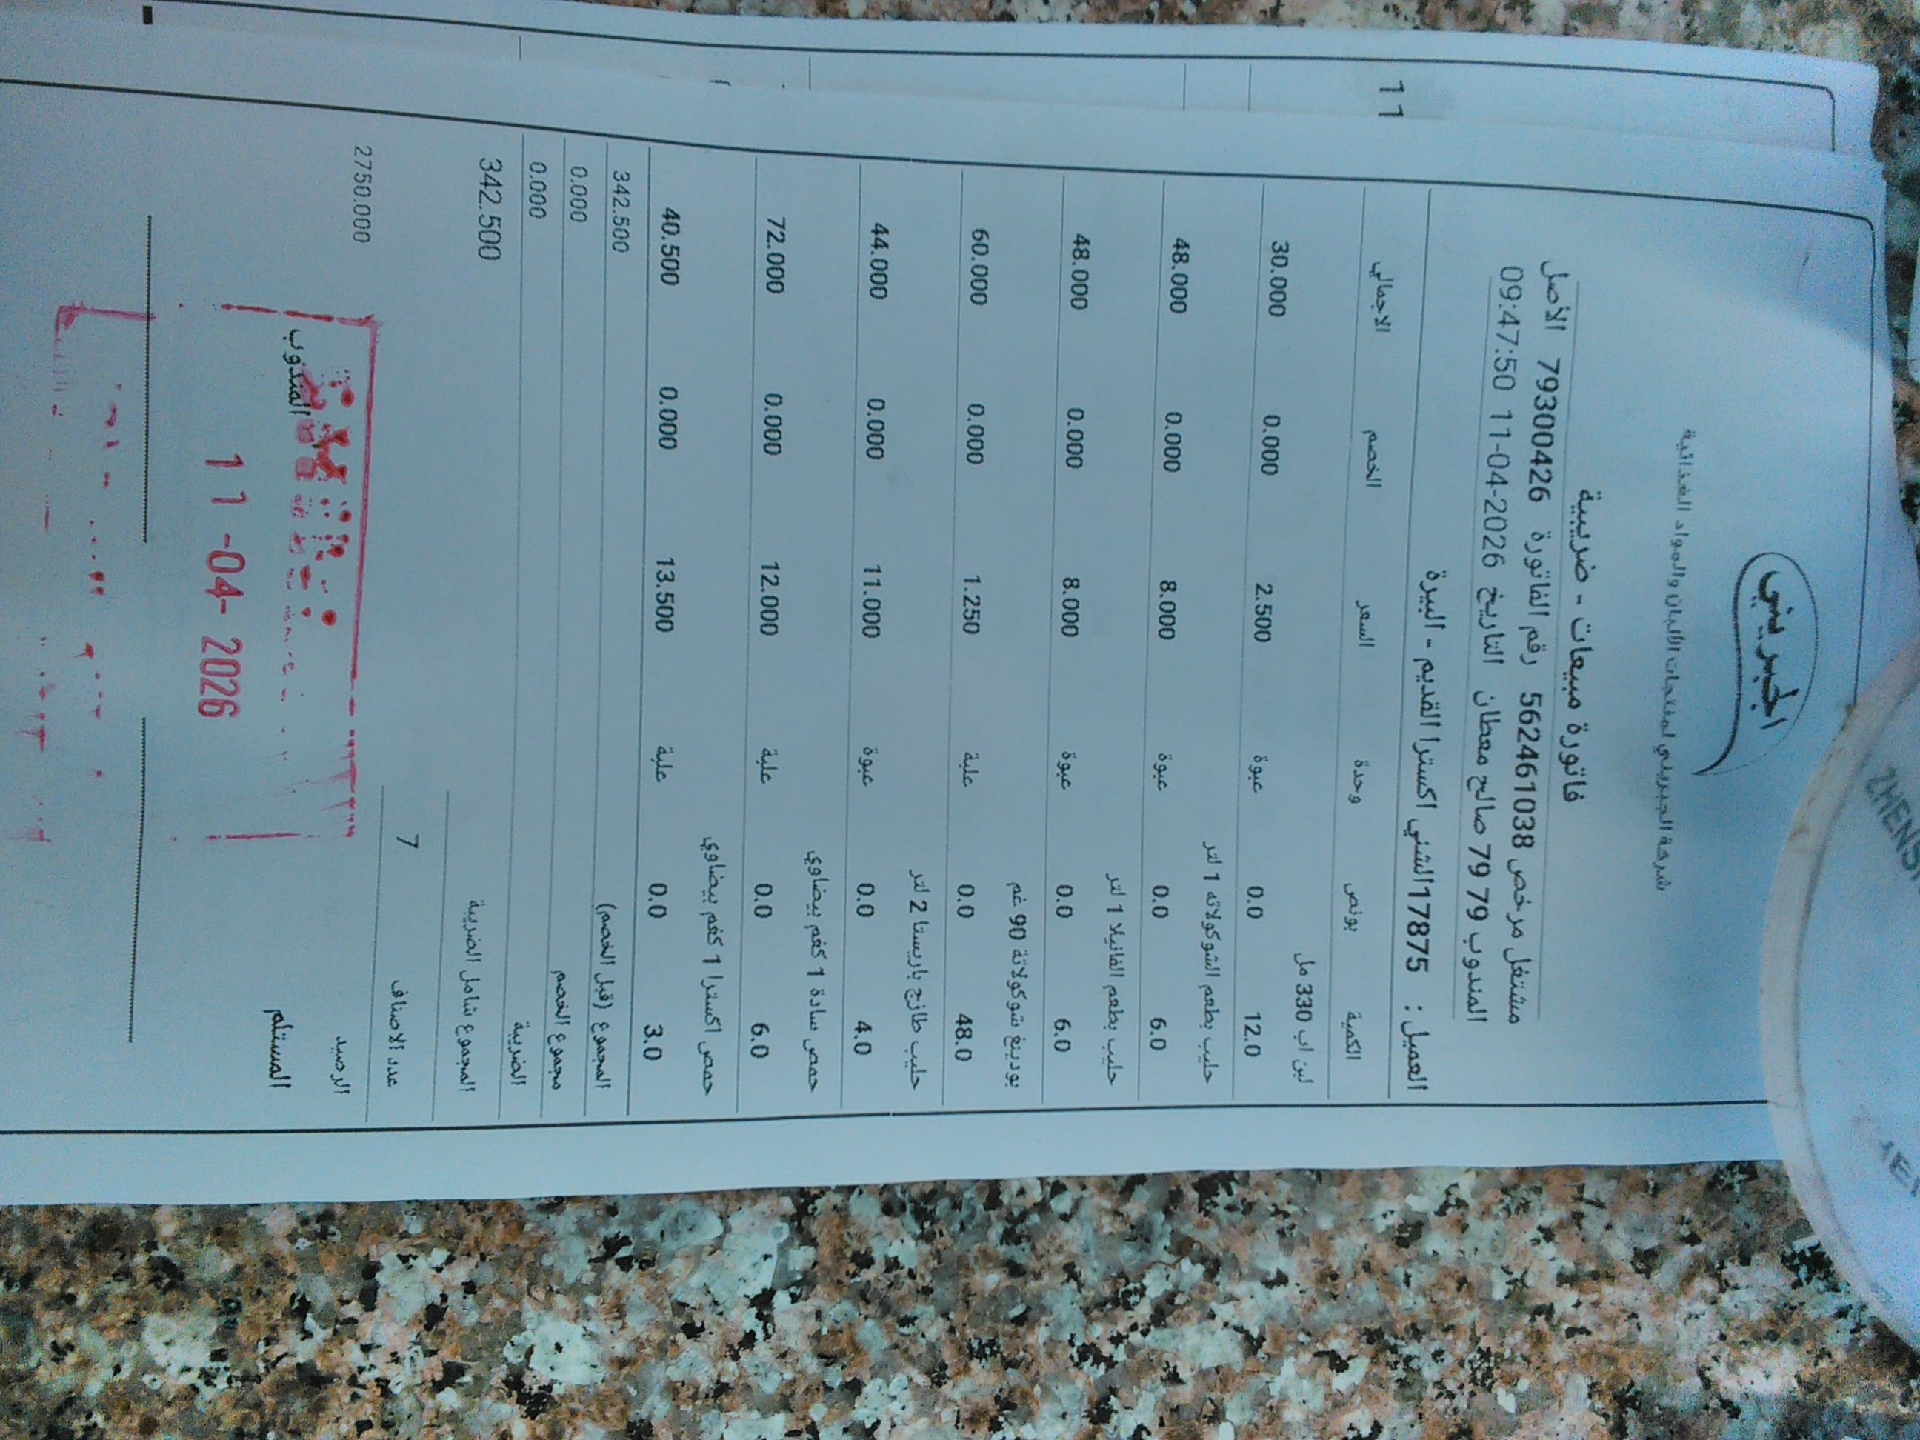 الجبريني
شركة الجبريني لمنتجات الألبان والمواد الغذائية
فاتورة مبيعات - ضريبية
مشتغل مرخص 562461038 رقم الفاتورة 79300426 الأصل
المندوب 79 79 صالح معطان التاريخ 11-04-2026 09:47:50
العميل : 17875 الشني اكسترا القديم - البيرة
الكمية بونص وحدة السعر الخصم الاجمالي
لبن اب 330 مل
12.0 0.0 عبوة 2.500 0.000 30.000
حليب بطعم الشوكولاته 1 لتر
6.0 0.0 عبوة 8.000 0.000 48.000
حليب بطعم الفانيلا 1 لتر
6.0 0.0 عبوة 8.000 0.000 48.000
بودينغ شوكولاتة 90 غم
48.0 0.0 علبة 1.250 0.000 60.000
حليب طازج باريستا 2 لتر
4.0 0.0 عبوة 11.000 0.000 44.000
حمص سادة 1 كغم بيضاوي
6.0 0.0 علبة 12.000 0.000 72.000
حمص اكسترا 1 كغم بيضاوي
3.0 0.0 علبة 13.500 0.000 40.500
المجموع (قبل الخصم) 342.500
مجموع الخصم 0.000
الضريبة 0.000
المجموع شامل الضريبة 342.500
عدد الاصناف 7
الرصيد 2750.000
المستلم المندوب
11 -04- 2026
11